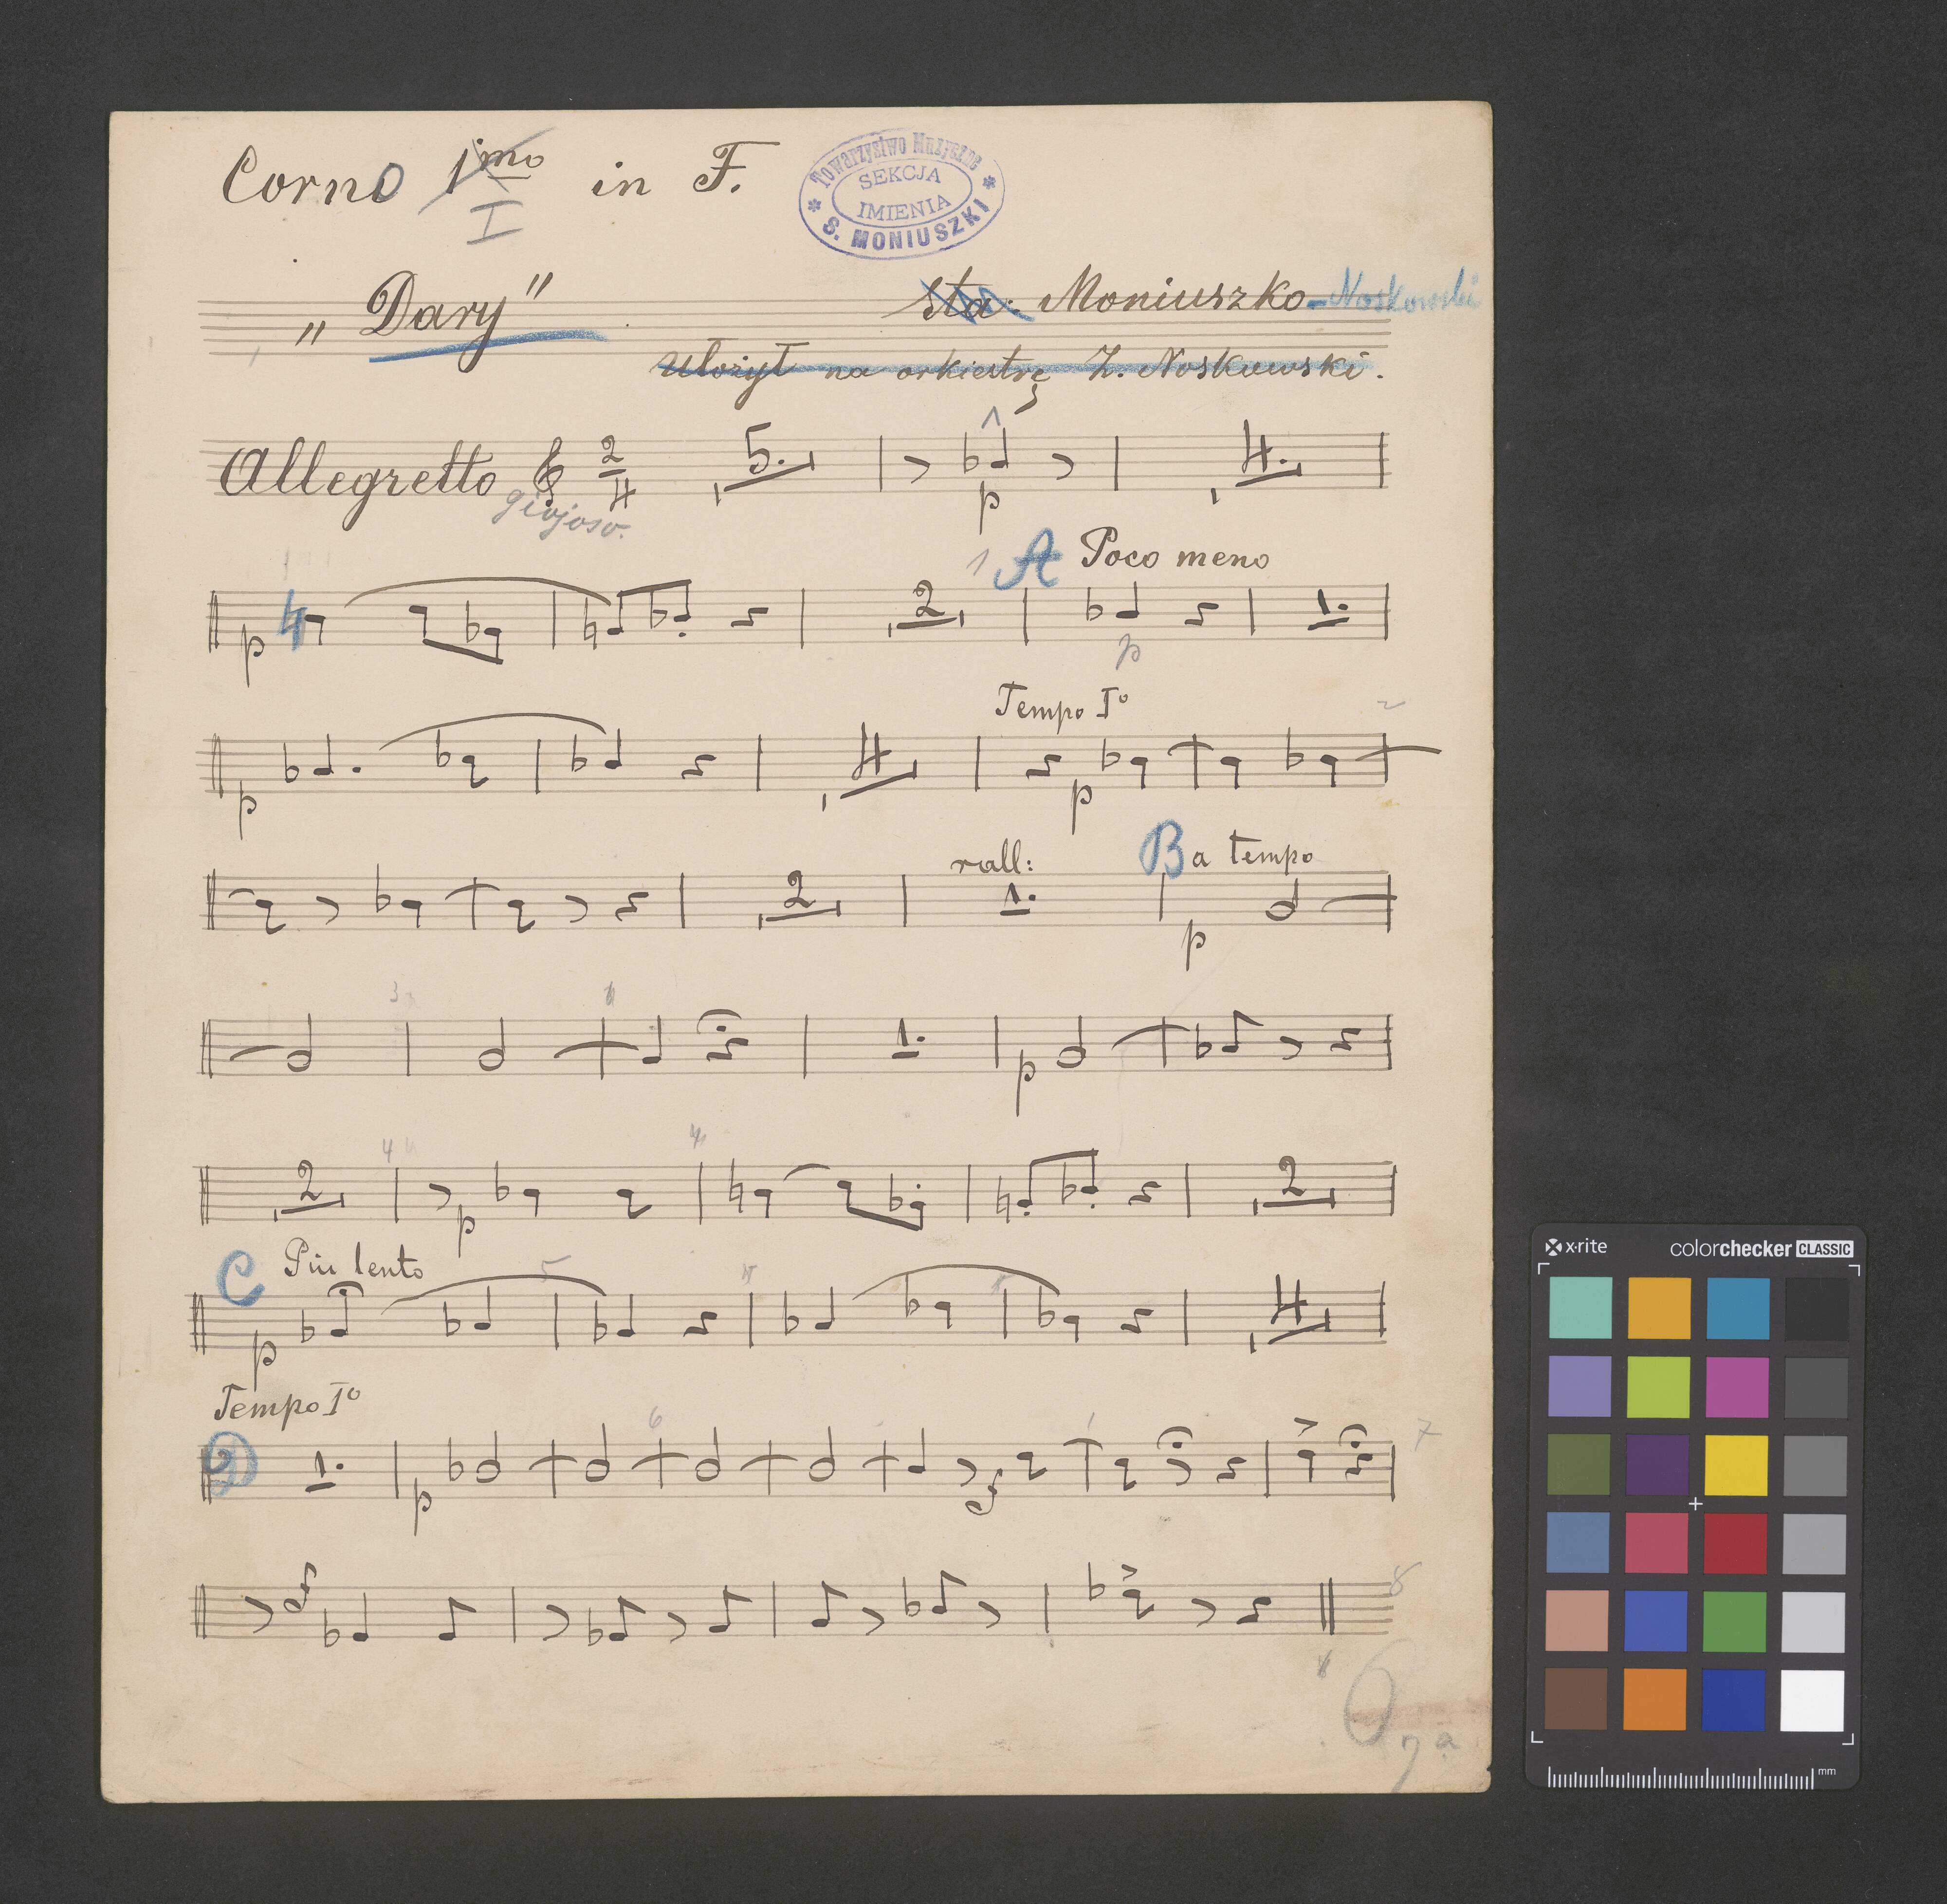 Corno 1mo in F.
I
Towarzystwo Muzyczne
SEKCJA
IMIENIA
S. MONIUSZKI
„Dary"
Sta: Moniuszko - Noskowski
Ułożył na orkiestrę Z. Noskowski.
Allegretto 2/4 5. 4.
giojoso.
p
1 A Poco meno
4 p 2 1.
p
Tempo Iº
p 4 p
rall: B a tempo
2 1. p
3
1. p
4
2 p 2
C Piu lento
5
p 4
Tempo Iº
D 1. p 6 f 7
8
6
7 a
x-rite colorchecker CLASSIC
mm